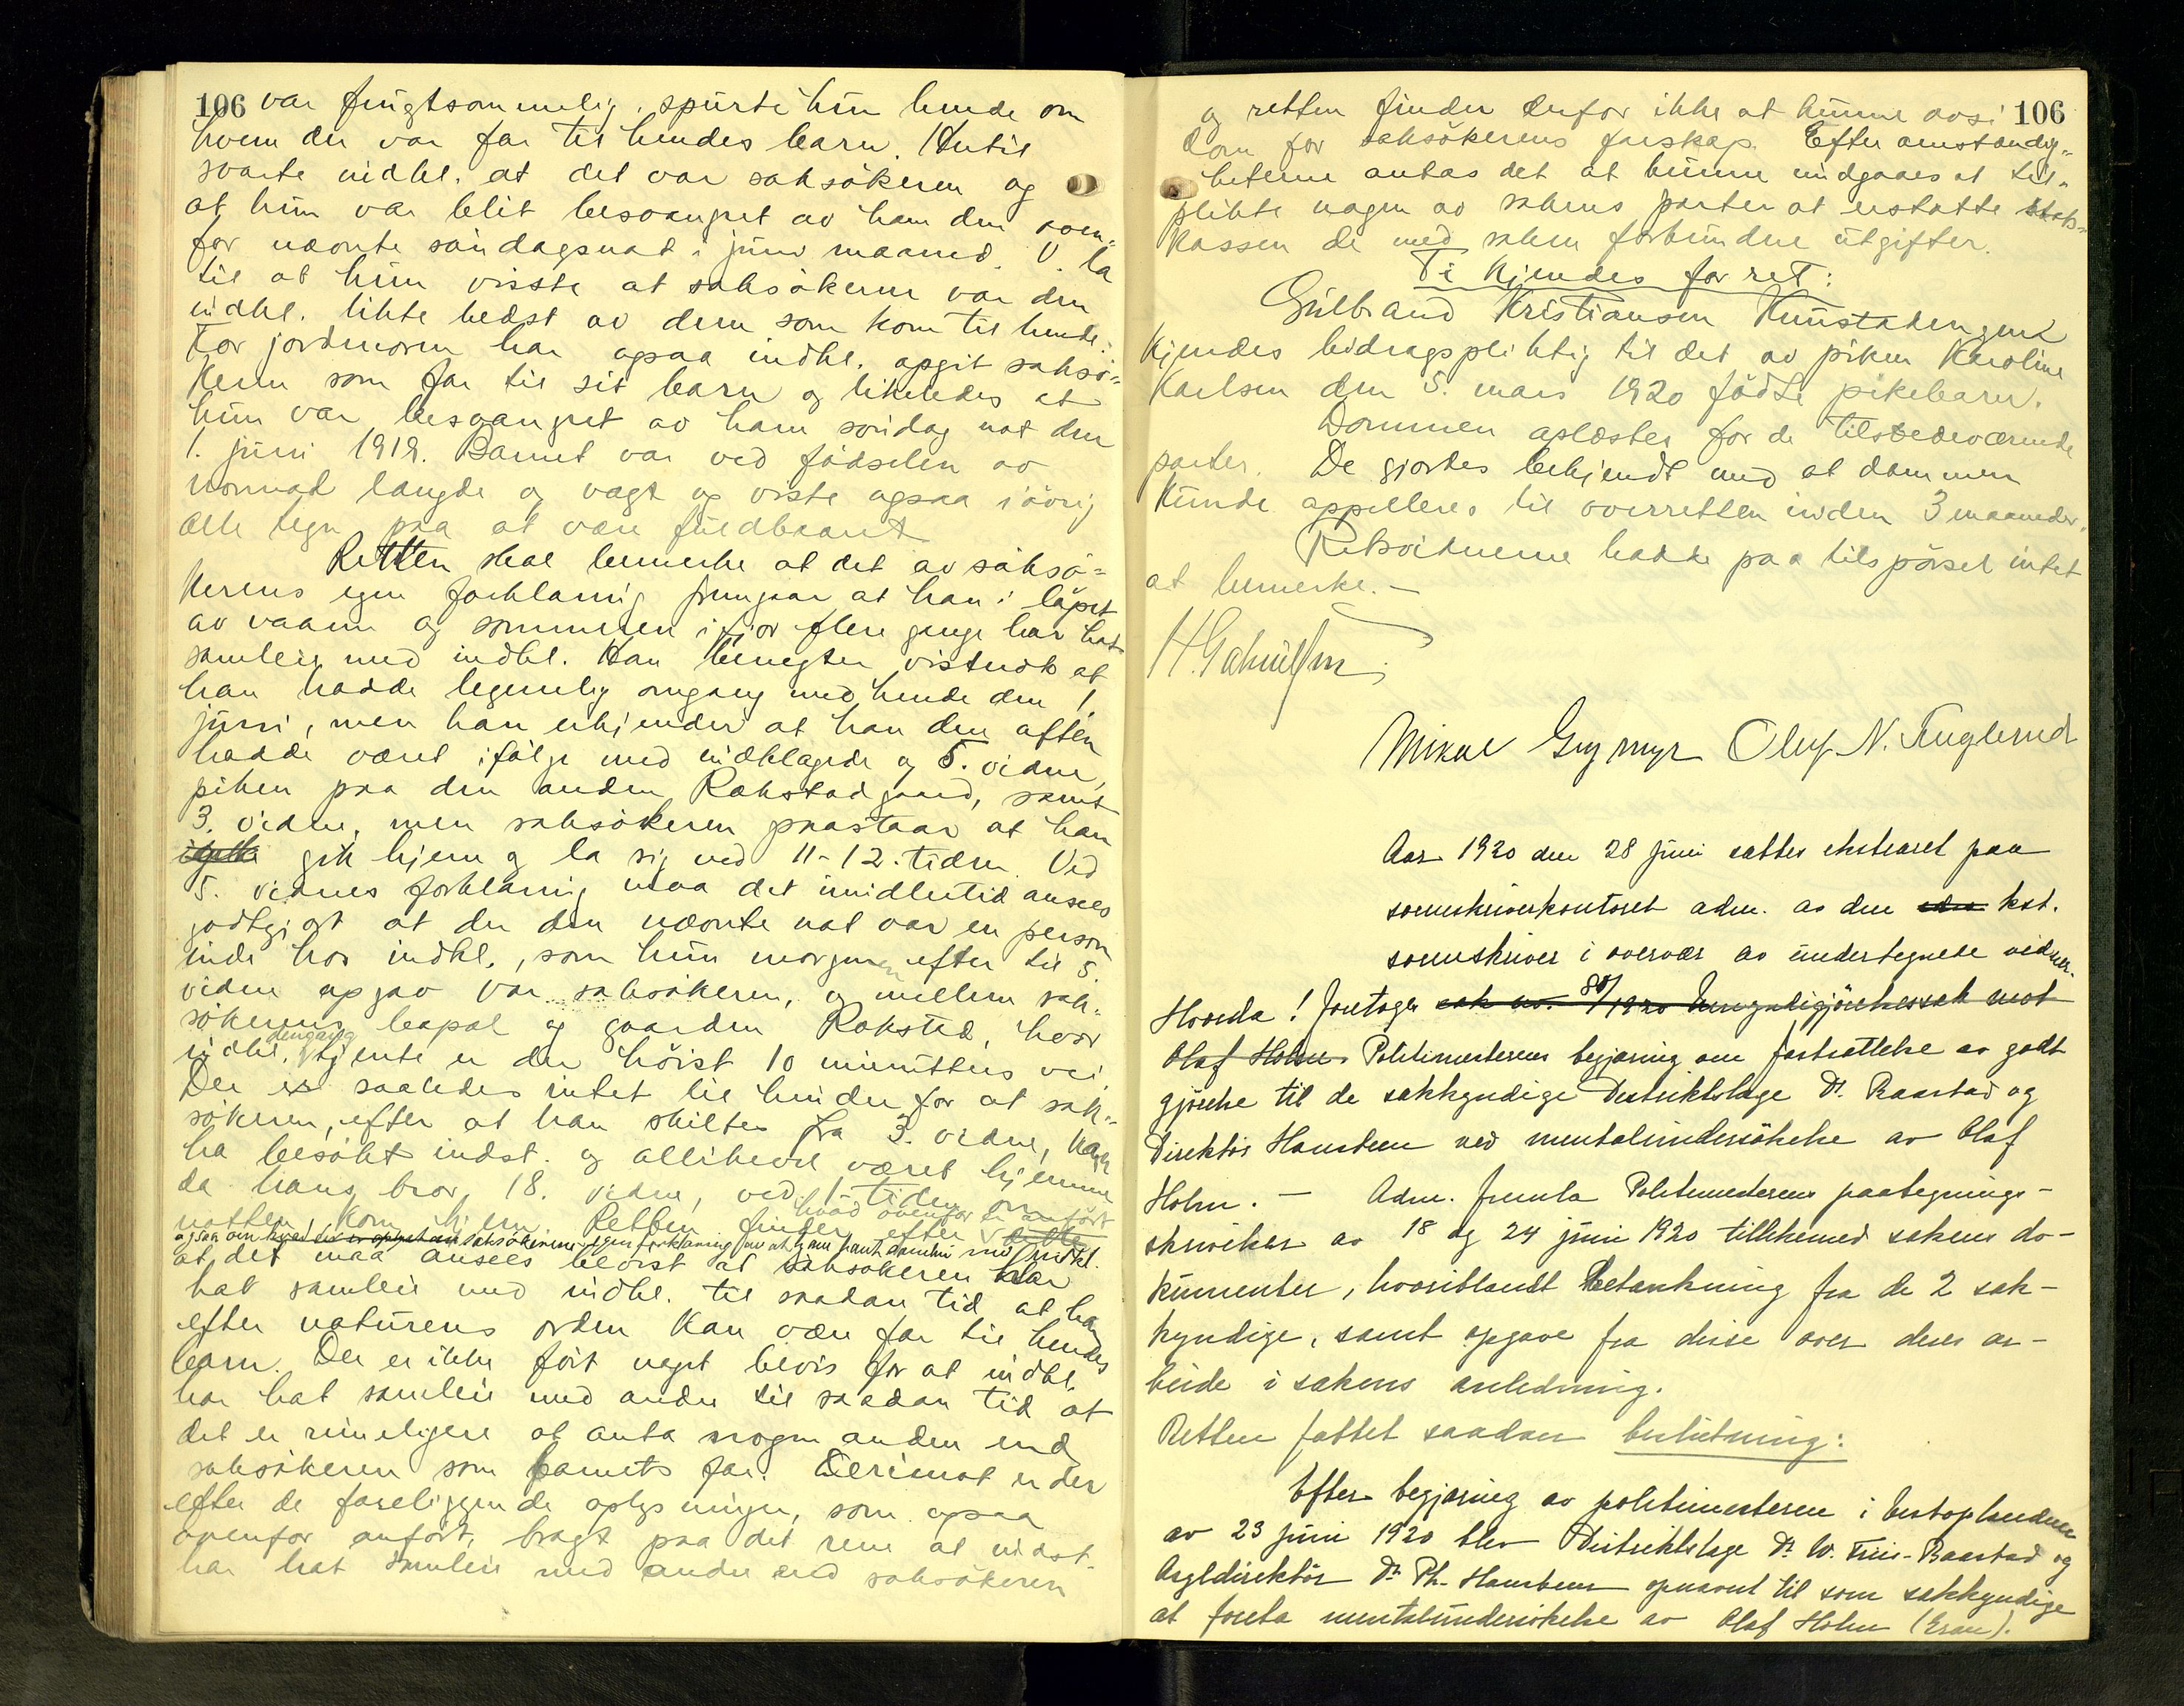 106 var frugtsommelig, spurte hun hende om
hvem der var far til hendes barn. Hertil
svarte indkl. at det var saksökeren og
at hun var blit besvangret av ham den oven-
for nævnte söndagsnat i juni maaned. V. la
til at hun visste at saksökeren var den
indkl. likte bedst av dem som kom til hende.
For jordmoren har ogsaa indkl. opgit saksö-
keren som far til sit barn og likeledes at
hun var besvangret av ham söndag nat den
1. juni 1919. Barnet var ved födselen av
normal længde og vægt og viste ogsaa iövrig
alle tegn paa at være fuldbaaret
Retten skal bemerke at det av saksö-
kerens egen forklaring fremgaar at han i löpet
av vaaren og sommeren ifjor flere gange har hat
samleie med indkl. Han benegter vistnok at
han hadde legemlig omgang med hende den 1.
juni, men han erkjender at han den aften
hadde været ifölge med indklagede og 5. vidne,
piken paa den anden Rakstadgaard, samt
3. vidne, men saksökeren paastaar at han
gik hjem og la sig ved 11-12. tiden. Ved
5. vidnes forklaring maa det imidlertid ansees
godtgjort at der den nævnte nat var en person
inde hos indkl., som hun morgenen efter til 5.
vidne opgav var saksökeren, og mellem sak-
sökerens bopæl og gaarden Rakstad, hvor
indkl. dengang tjente er der höist 10 minutters vei.
Der er saaledes intet til hinder for at sak-
sökeren, efter at han skiltes fra 3. vidne, kan
ha besökt indst. og allikevel været hjemme
da hans bror, 18. vidne, ved 1-tiden om
natten kom hjem. Retten finder efter hvad ovenfor er anfört
ogsaa om saksökerens egen forklaring om at han hadde samleie med indkl.
at det maa ansees bevist at saksökeren har
hat samleie med indkl. til saadan tid at han
efter naturens orden kan være far til hendes
barn. Der er ikke fört noget bevis for at indkl.
har hat samleie med andre til saadan tid at
det er rimeligere at anta nogen anden end
saksökeren som barnets far. Derimot er der
efter de foreliggende oplysninger, som ogsaa
ovenfor anfört, bragt paa det rene at indst.
har hat samleie med andre end saksökeren
og retten finder derfor ikke at kunne avsi 106
dom for saksökerens farskap. Efter omstændig-
heterne antas det at kunne undgaaes at til-
plikte nogen av sakens parter at erstatte stats-
kassen de med saken forbundne utgifter.
Ti kjendes for ret:
Gulbrand Kristiansen Kunstadengend
kjendes bidragspliktig til det av piken Karoline
Karlsen den 5. mars 1920 födte pikebarn.
Dommen oplæstes for de tilstedeværende
parter. De gjordes bekjendt med at dommen
kunde appelleres til overretten inden 3 maaneder.
Retsvidnerne hadde paa tilspörsel intet
at bemerke. -
Olaf N. Fuglerud
Aar 1920 den 28 juni sattes ekstraret paa
sorenskriverkontoret adm. av den kst.
sorenskriver i overvær av undertegnede vidner.
Hvorda! Foretoges sak no. 80/1920 Umyndiggjörelsessak mot
Olaf Holm. Politimesterens begjæring om fastsættelse av godt
gjörelse til de sakkyndige Distriktslæge Dr. Baastad og
Direktör Hansteen ved mentalundersökelse av Olaf
Holm. - Adm. fremla Politimesterens paategnings-
skrivelser av 18 og 24 juni 1920 tillikemed sakens do-
kumenter, hvoriblandt betænkning fra de 2 sak-
kyndige, samt opgave fra disse over deres ar-
beide i sakens anledning.
Retten fattet saadan beslutning:
Efter begjæring av politimesteren i Vestoplandene
av 23 juni 1920 blev Distriktslæge Dr. W. Friis-Baastad og
Asyldirektör Dr. Ph. Hansteen opnævnt til som sakkyndige
at foreta mentalundersökelse av Olaf Holm (Gran).